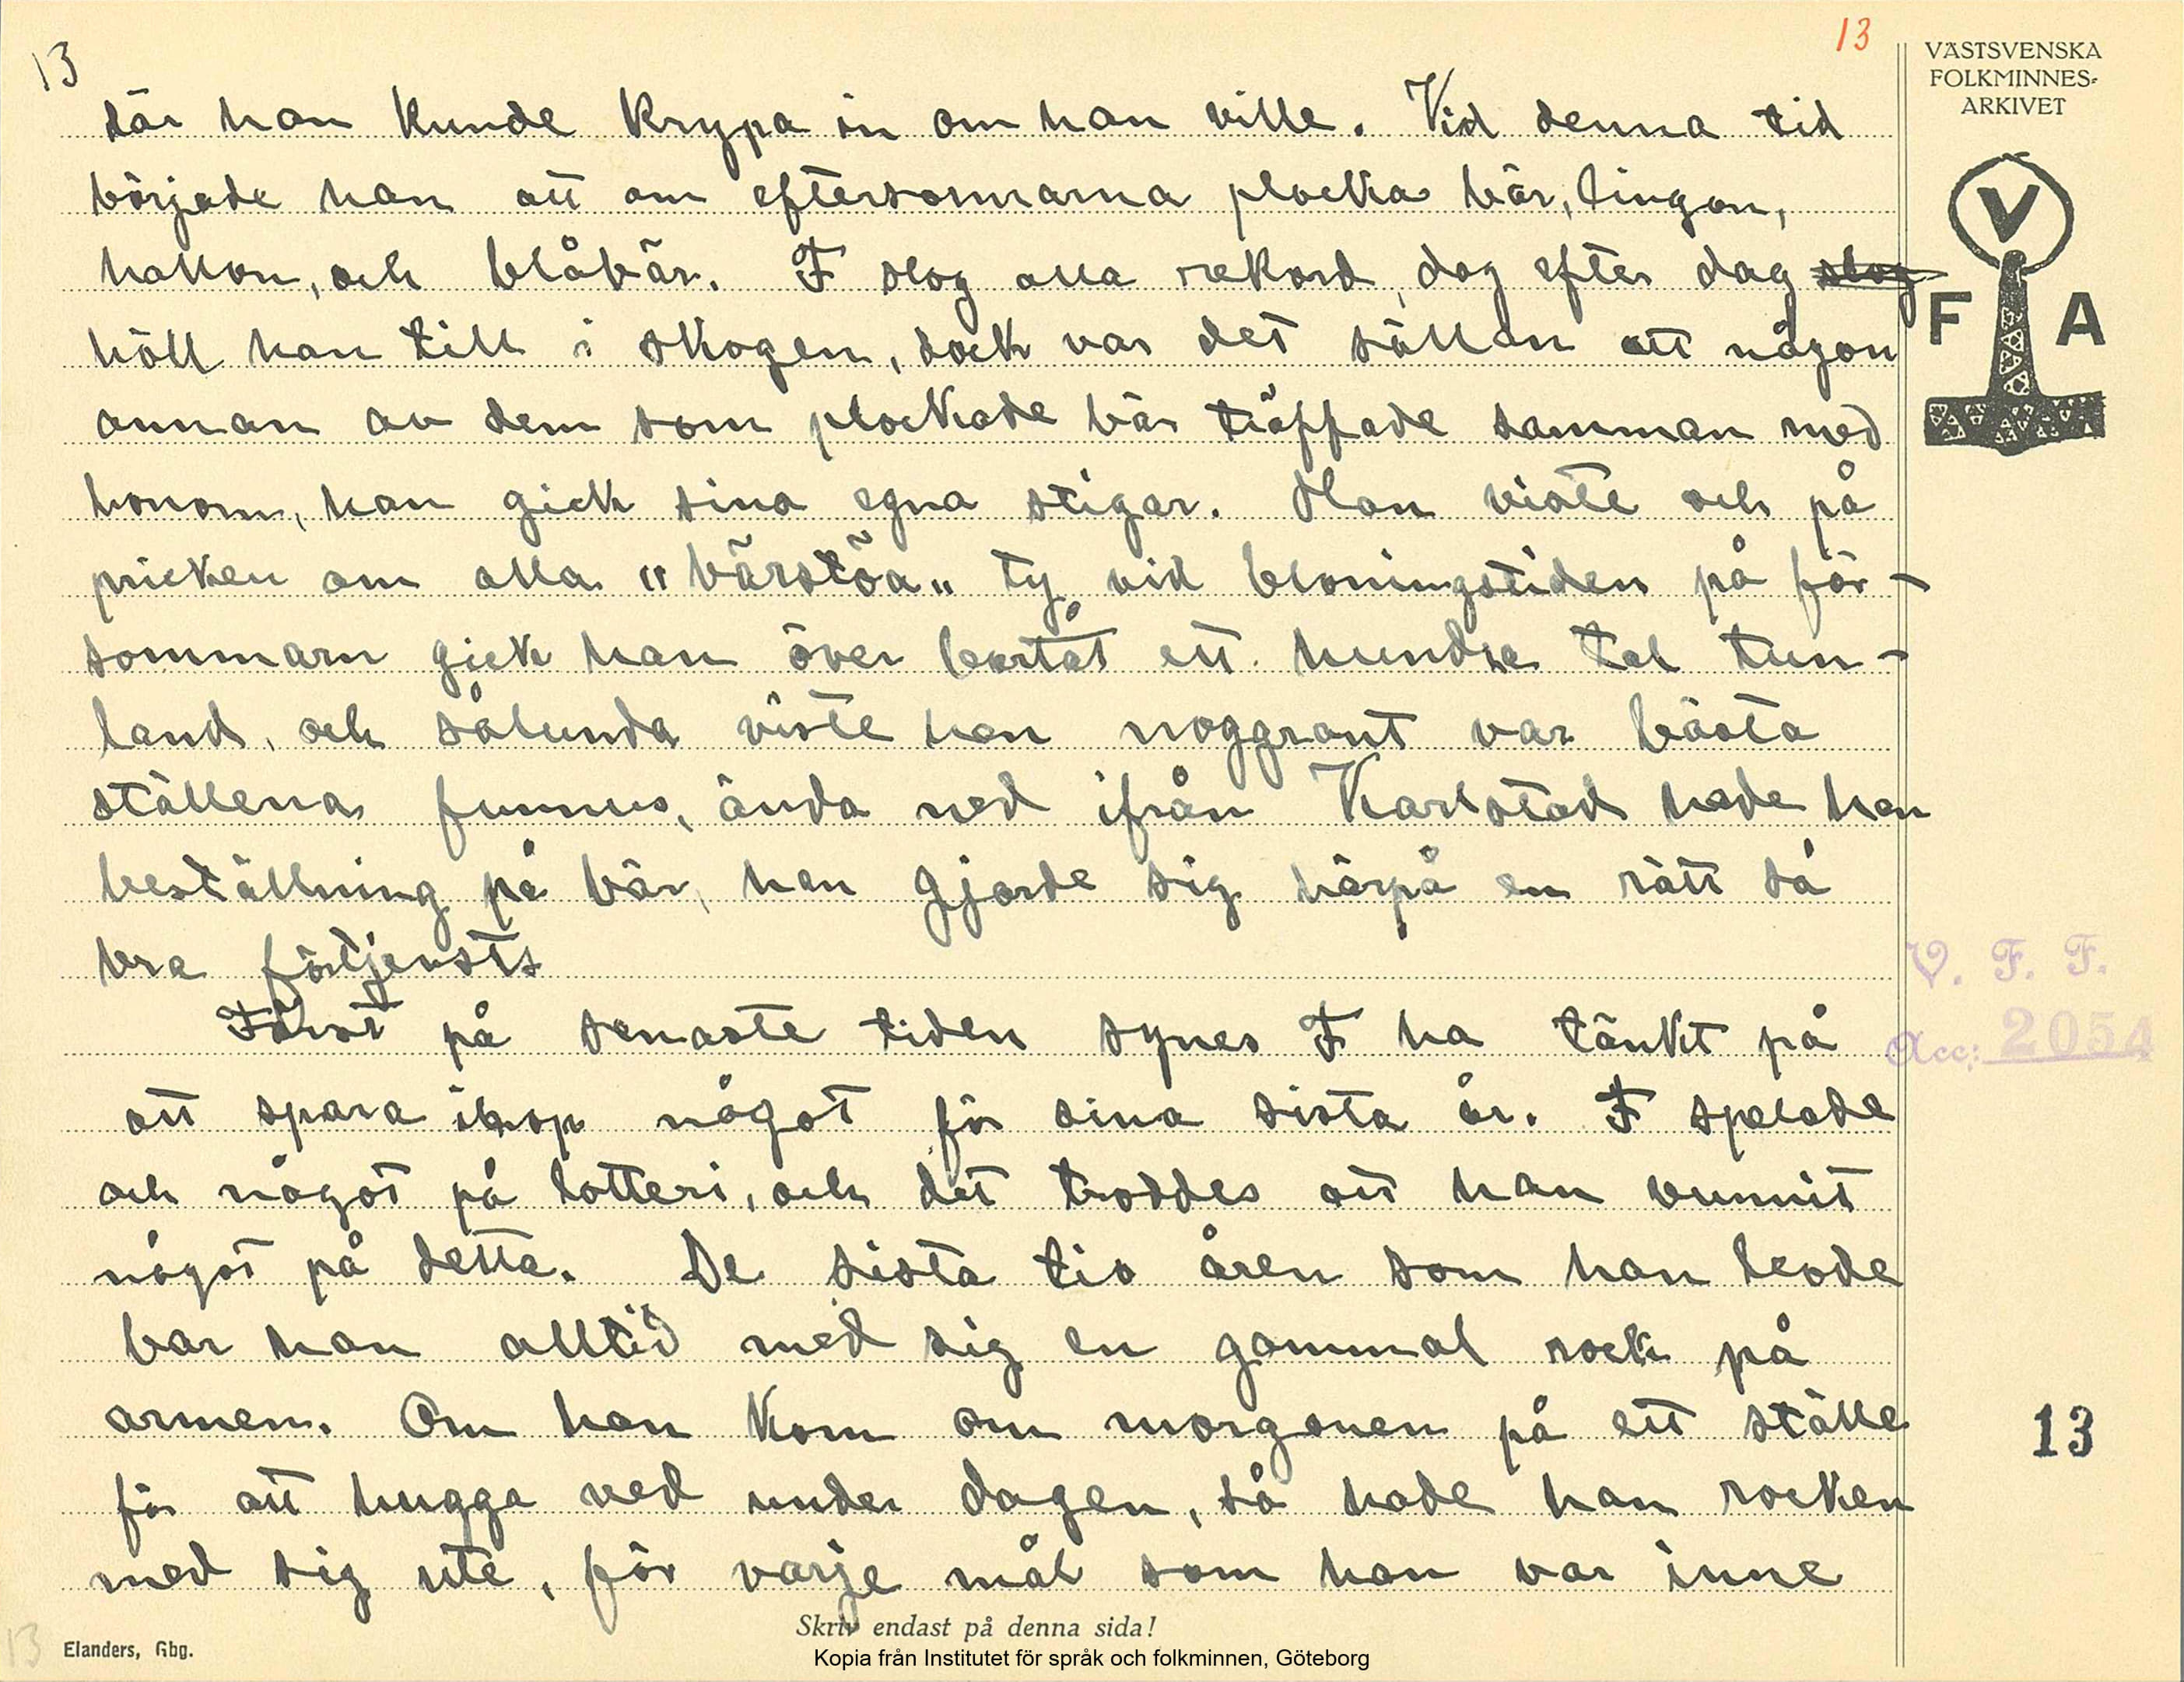 13
13
VÄSTSVENSKA
FOLKMINNES-
ARKIVET
där han kunde krypa in om han ville. Vid denna tid
började han att om eftersomrarna plocka bär, lingon,
hallon, och blåbär. F slog alla rekord, dag efter dag slog
höll han till i skogen, dock var det sällan att någon
annan av dem som plockade bär träffade samman med
honom, han gick sina egna stigar. Han viste och på
pricken om alla "bärstöa" ty vid blomingstiden på för-
sommarn gick han över bortåt ett hundra tal tun-
land, och sålunda viste han noggrant var bästa
ställena funnus, ända ned ifrån Karlstad hade han
beställning på bär, han gjorde sig härpå en rätt så
bra förtjenst
Först på senaste tiden synes F ha tänkt på
att spara ihop något för sina sista år. F spelade
och något på lotteri, och det troddes att han vunnit
något på detta. De sista tio åren som han levde
bar han alltid med sig en gammal rock på
armen. Om han kom om morgonen på ett ställe
för att hugga ved under dagen, så hade han rocken
med sig ute, för varje mål som han var inne
V
F A
V. F. F.
Acc: 2054
13
Skriv endast på denna sida!
13
Elanders, Gbg.
Kopia från Institutet för språk och folkminnen, Göteborg